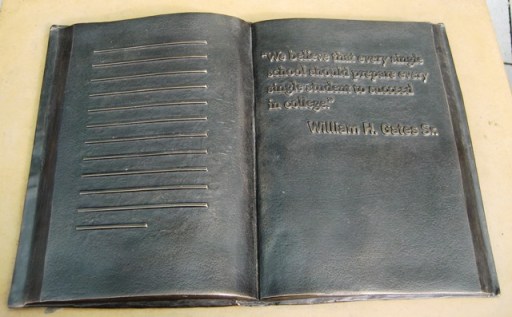 "We believe that every single
school should prepare every
single student to succeed
in college."
William H. Gates Sr.